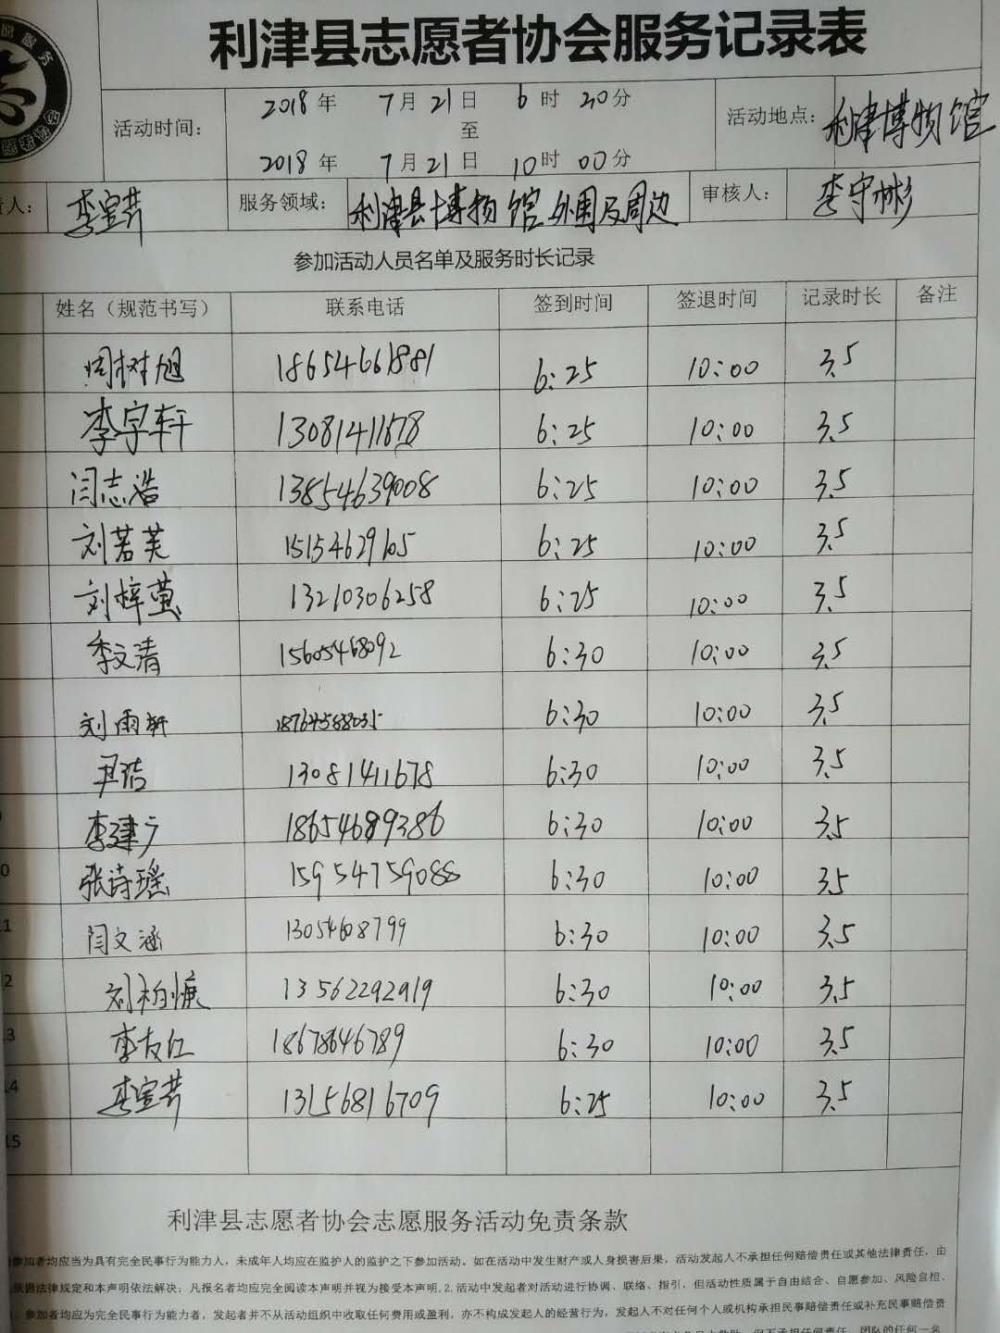 利津县志愿者协会服务记录表
活动时间： 2018年 7月21日 6时 20分 至 2018年 7月21日 10时 00分 活动地点： 利津博物馆
责人： 李宣芹 服务领域： 利津县博物馆外围及周边 审核人： 李守彬
参加活动人员名单及服务时长记录
姓名（规范书写） 联系电话 签到时间 签退时间 记录时长 备注
周树旭 18654661881 6:25 10:00 3.5
李宇轩 13081411678 6:25 10:00 3.5
闫志浩 13854639008 6:25 10:00 3.5
刘若芙 15154629105 6:25 10:00 3.5
刘梓萤 13210306258 6:25 10:00 3.5
季文清 15605468092 6:30 10:00 3.5
刘雨轩 18764588035 6:30 10:00 3.5
尹洁 13081411678 6:30 10:00 3.5
李建广 18654689386 6:30 10:00 3.5
张诗瑶 15954759088 6:30 10:00 3.5
闫文涵 1305468799 6:30 10:00 3.5
刘柏慷 13562292919 6:30 10:00 3.5
李友红 18678646789 6:30 10:00 3.5
14 李宣芹 13156816709 6:25 10:00 3.5
15
利津县志愿者协会志愿服务活动免责条款
参加者均应当为具有完全民事行为能力人，未成年人均应在监护人的监护之下参加活动。如在活动中发生财产或人身损害后果，活动发起人不承担任何赔偿责任或其他法律责任，由
依据法律规定和本声明依法解决；凡报名者均应完全阅读本声明并视为接受本声明。2.活动中发起者对活动进行协调、联络、指引，但活动性质属于自由结合、自愿参加、风险自担、
参加者均应为完全民事行为能力者，发起者并不从活动组织中收取任何费用或盈利，亦不构成发起人的经营行为，发起人不对任何个人或机构承担民事赔偿责任或补充民事赔偿责